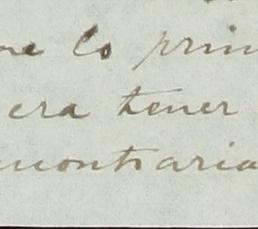 ue lo prin
era tener
ncontraria